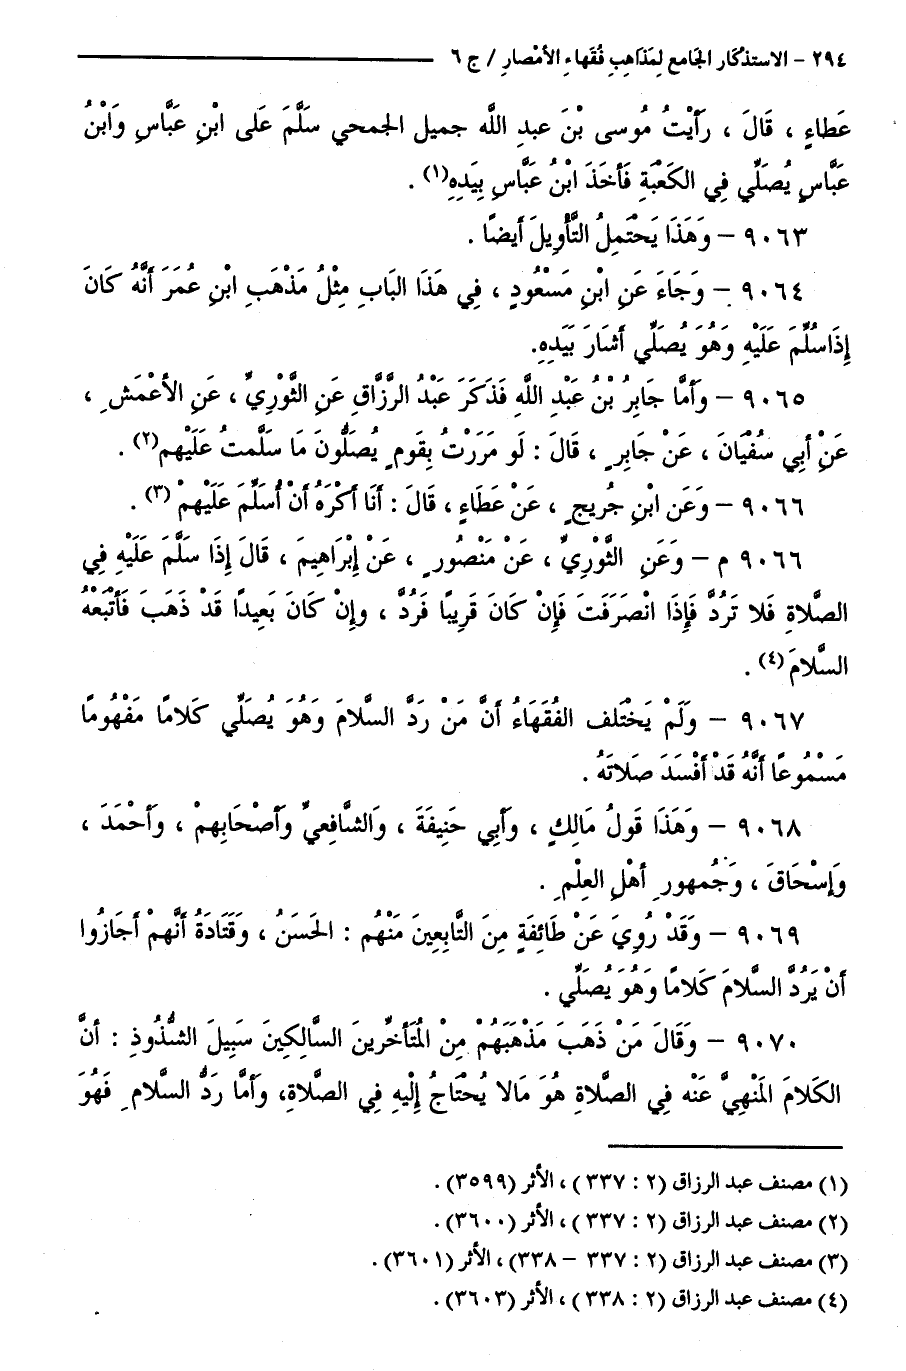 ٢٩٤ - الاستذكار الجامع لمذاهب فُقَهاء الأمْصارِ / ج ٦
عَطاءٍ ، قَالَ ، رَأَيْتُ مُوسى بْنَ عبدِ اللَّه جميل الجمحي سَلَّمَ عَلى ابْنِ عبَّاسِ وَابْنُ
عبَّاسٍ يُصَلِّي فِي الكَعْبَةِ فَأخَذَ ابْنُ عبَّاسٍ بِيَدِهِ(١) .
٩٠٦٣ – وَهَذَا يَحْتَمِلُ التَّأْوِيلَ أيضًا .
٩٠٦٤ – وَجَاءَ عَنِ ابْنِ مَسْعُودٍ ، فِي هَذَا البَابِ مِثْلُ مَذْهَبِ ابْنِ عُمَرَ أنَّهُ كَانَ
إِذَاسُلِّمَ عَلَيْهِ وَهُوَ يُصَلِّي أشَارَ بَيَدِهِ.
٩٠٦٥ – وَأمَّا جَابِرُ بْنُ عَبْدِ اللَّهِ فَذَكَرَ عَبْدُ الرَّزَّاقِ عَنِ الثَّوْرِيِّ ، عَنِ الأعْمَشِ ،
عَنْ أبِي سُفْيَانَ ، عَنْ جَابِرٍ ، قَالَ : لَو مَرَرْتُ بِقَومٍ يُصَلُّونَ مَا سَلَّمتُ عَلَيْهِم(٢) .
٩٠٦٦ – وَعَنِ ابْنِ جُرِيجٍ ، عَنْ عَطَاءٍ ، قَالَ : أنَا أكْرَهُ أنْ أُسَلِّمَ عَلَيْهِمْ (٣) .
٩٠٦٦ م – وَعَنِ الثَّوْرِيِّ ، عَنْ مَنْصُورٍ ، عَنْ إِبْرَاهِيمَ ، قَالَ إِذَا سَلَّمَ عَلَيْهِ فِي
الصَّلاةِ فَلا تَرُدَّ فَإِذَا انْصَرَفَتَ فَإِنْ كَانَ قَرِيبًا فَرُدَّ ، وإِنْ كَانَ بَعِيدًا قَدْ ذَهَبَ فَأَتْبَعْهُ
السَّلامَ(٤) .
٩٠٦٧ – وَلَمْ يَخْتَلِف الفُقَهَاءُ أنَّ مَنْ رَدَّ السَّلامَ وَهُوَ يُصَلِّي كَلامًا مَفْهُومًا
مَسْمُوعًا أنَّهُ قَدْ أفْسَدَ صَلاتَهُ .
٩٠٦٨ – وَهَذَا قَولُ مَالِكٍ ، وَأبِي حَنِيفَةَ ، وَالشَّافِعِيِّ وَأصْحَابِهِمْ ، وَأحْمَدَ ،
وَإِسْحَاقَ ، وَجُمهورِ أهْلِ العِلْمِ .
٩٠٦٩ – وَقَدْ رُوِيَ عَنْ طَائِفَةٍ مِنَ التَّابِعِينَ مَنْهُم : الحَسَنُ ، وقَتَادَةُ أنَّهمْ أجَازُوا
أنْ يَرُدَّ السَّلامَ كَلامًا وَهُوَ يُصَلِّي .
٩٠٧٠ – وَقَالَ مَنْ ذَهَبَ مَذْهَبَهُمْ مِنْ المُتَأخِّرِينَ السَّالِكِينَ سَبِيلَ الشُّذُوذِ : أنَّ
الكَلامَ المَنْهِيَّ عَنْه فِي الصَّلاةِ هُوَ مَالا يُحْتَاجُ إِلَيْهِ فِي الصَّلاةِ، وَأمَّا رَدُّ السَّلامِ فَهُوَ
(١) مصنف عبد الرزاق (٢ : ٣٣٧) ، الأثر (٣٥٩٩) .
(٢) مصنف عبد الرزاق (٢ : ٣٣٧) ، الأثر (٣٦٠٠) .
(٣) مصنف عبد الرزاق (٢ : ٣٣٧ – ٣٣٨) ، الأثر (٣٦٠١) .
(٤) مصنف عبد الرزاق (٢ : ٣٣٨) ، الأثر (٣٦٠٣) .